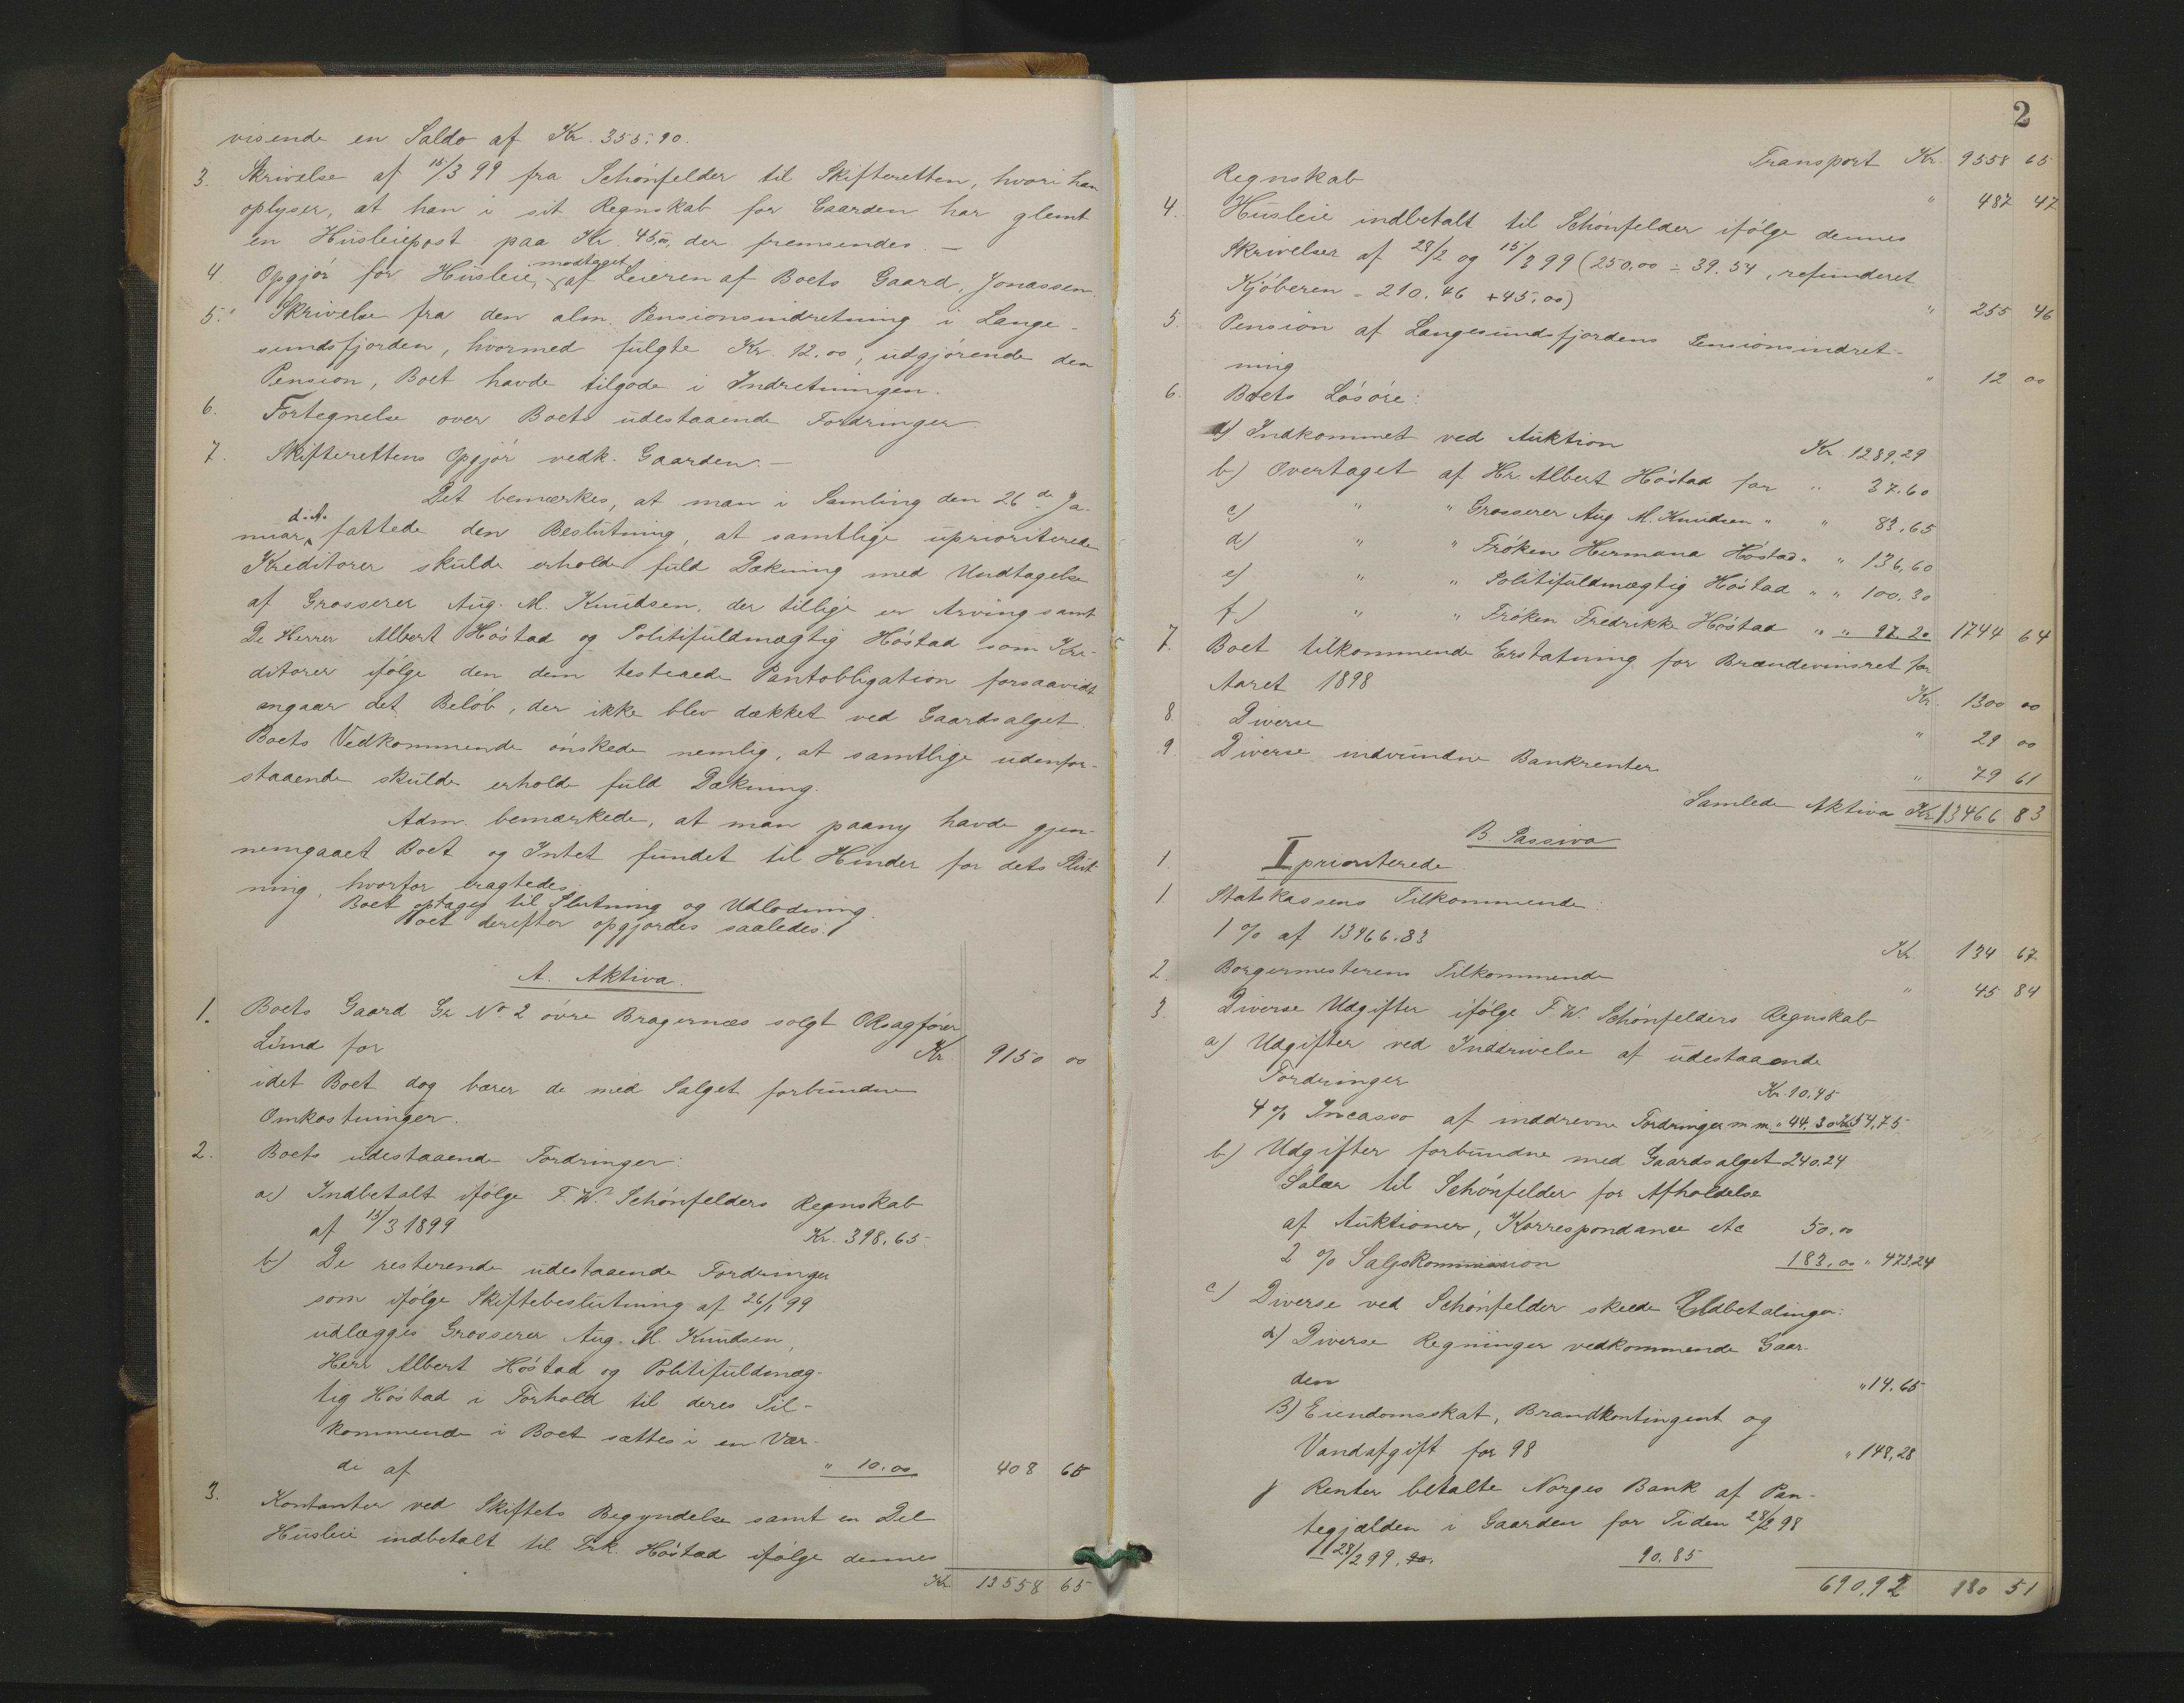 visende en Saldo af Kr. 355.90.
3. Skrivelse af 15/3 99 fra Schönfelder til Skifteretten, hvori han
oplyser, at han i sit Regnskab for Gaarden har glemt
en Husleiepost paa Kr. 45.00, der fremsendes. —
4. Opgjør for Husleie, modtaget af Leieren af Boets Gaard, Jonassen.
5. Skrivelse fra den alm. Pensionsindretning i Lange-
sundsfjorden, hvormed fulgte Kr. 12.00, udgjørende den
Pension, Boet havde tilgode i Indretningen.
6. Fortegnelse over Boets udestaaende Fordringer
7. Skifterettens Opgjør vedk. Gaarden. —
Det bemærkes, at man i Samling den 26de Ja-
nuar d.A. fattede den Beslutning, at samtlige uprioriterede
Kreditorer skulde erholde fuld Dækning med Undtagelse
af Grosserer Aug. M. Knudsen, der tillige er Arving samt
De Herrer Albert Höstad og Politifuldmægtig Höstad som Kre-
ditorer ifølge den dem testerede Pantobligation forsaavidt
angaar det Beløb, der ikke blev dækket ved Gaardsalget.
Boets Vedkommende ønskede nemlig, at samtlige udenfor-
staaende skulde erholde fuld Dækning.
Adm. bemærkede, at man paany havde gjen-
nemgaaet Boet og Intet fundet til Hinder for dets Slut-
ning, hvorfor eragtedes:
Boet optages til Slutning og Udlodning.
Boet derefter opgjordes saaledes:
A. Aktiva.
1. Boets Gaard Gr No. 2 øvre Bragernæs solgt ORsagfører
Lund for Kr. 9150 00
idet Boet dog bærer de med Salget forbundne
Omkostninger.
2. Boets udestaaende Fordringer:
a) Indbetalt ifølge F. W. Schönfelders Regnskab
af 15/3 1899 Kr. 398.65.
b) De resterende udestaaende Fordringer
som ifølge Skiftebeslutning af 26/1 99
udlægges Grosserer Aug. M. Knudsen,
Herr Albert Höstad og Politifuldmæg-
tig Höstad i Forhold til deres Til-
kommende i Boet sættes i en Vær-
di af " 10.00 408 65
3. Kontanter ved Skiftets Begyndelse samt en Del
Husleie indbetalt til Frk. Höstad ifølge dennes
Kr. 13558 65
2
Transport Kr. 9558 65
Regnskab " 487 47
4. Husleie indbetalt til Schönfelder ifølge dennes
Skrivelser af 28/2 og 15/3 99 (250.00 ÷ 39.54, refunderet
Kjøberen = 210.46 + 45.00) " 255 46
5. Pension af Langesundsfjordens Pensionsindret-
ning " 12 00
6. Boets Løsøre:
a) Indkommet ved Auktion Kr. 1289.29
b) Overtaget af Hr. Albert Höstad for " 37.60
c) " " Grosserer Aug. M. Knudsen " " 83.65
d) " " Frøken Hermana Höstad " " 136.60
e) " " Politifuldmægtig Höstad " " 100.30
f) " " Frøken Fredrikke Höstad " " 97.20 1744 64
7. Boet tilkommende Erstatning for Brændevinsret for
Aaret 1898 Kr. 1300 00
8. Diverse " 29 00
9. Diverse indvundne Bankrenter " 79 61
Samlede Aktiva Kr. 13466 83
B. Passiva
1. I prioriterede.
1. Statskassens Tilkommende:
1 % af 13466.83 Kr. 134 67
2. Borgermesterens Tilkommende " 45 84
3. Diverse Udgifter ifølge F. W. Schönfelders Regnskab
a) Udgifter ved Inddrivelse af udestaaende
Fordringer Kr. 10.45
4 % Incasso af inddrevne Fordringer m m. " 44.30 Kr. 54.75
b) Udgifter forbundne med Gaardsalget 240.24
Salær til Schönfelder for Afholdelse
af Auktioner, Korrespondance etc 50.00
2 % Salgskommission 183.00 " 473.24
c) Diverse ved Schönfelder skede Udbetalinger:
α) Diverse Regninger vedkommende Gaar-
den " 14.65
β) Eiendomsskat, Brandkontingent og
Vandafgift for 98 " 148.28
γ Renter betalte Norges Bank af Pan-
tegjælden i Gaarden for Tiden 28/2 98
28/2 99. 90.85
690.92 180 51